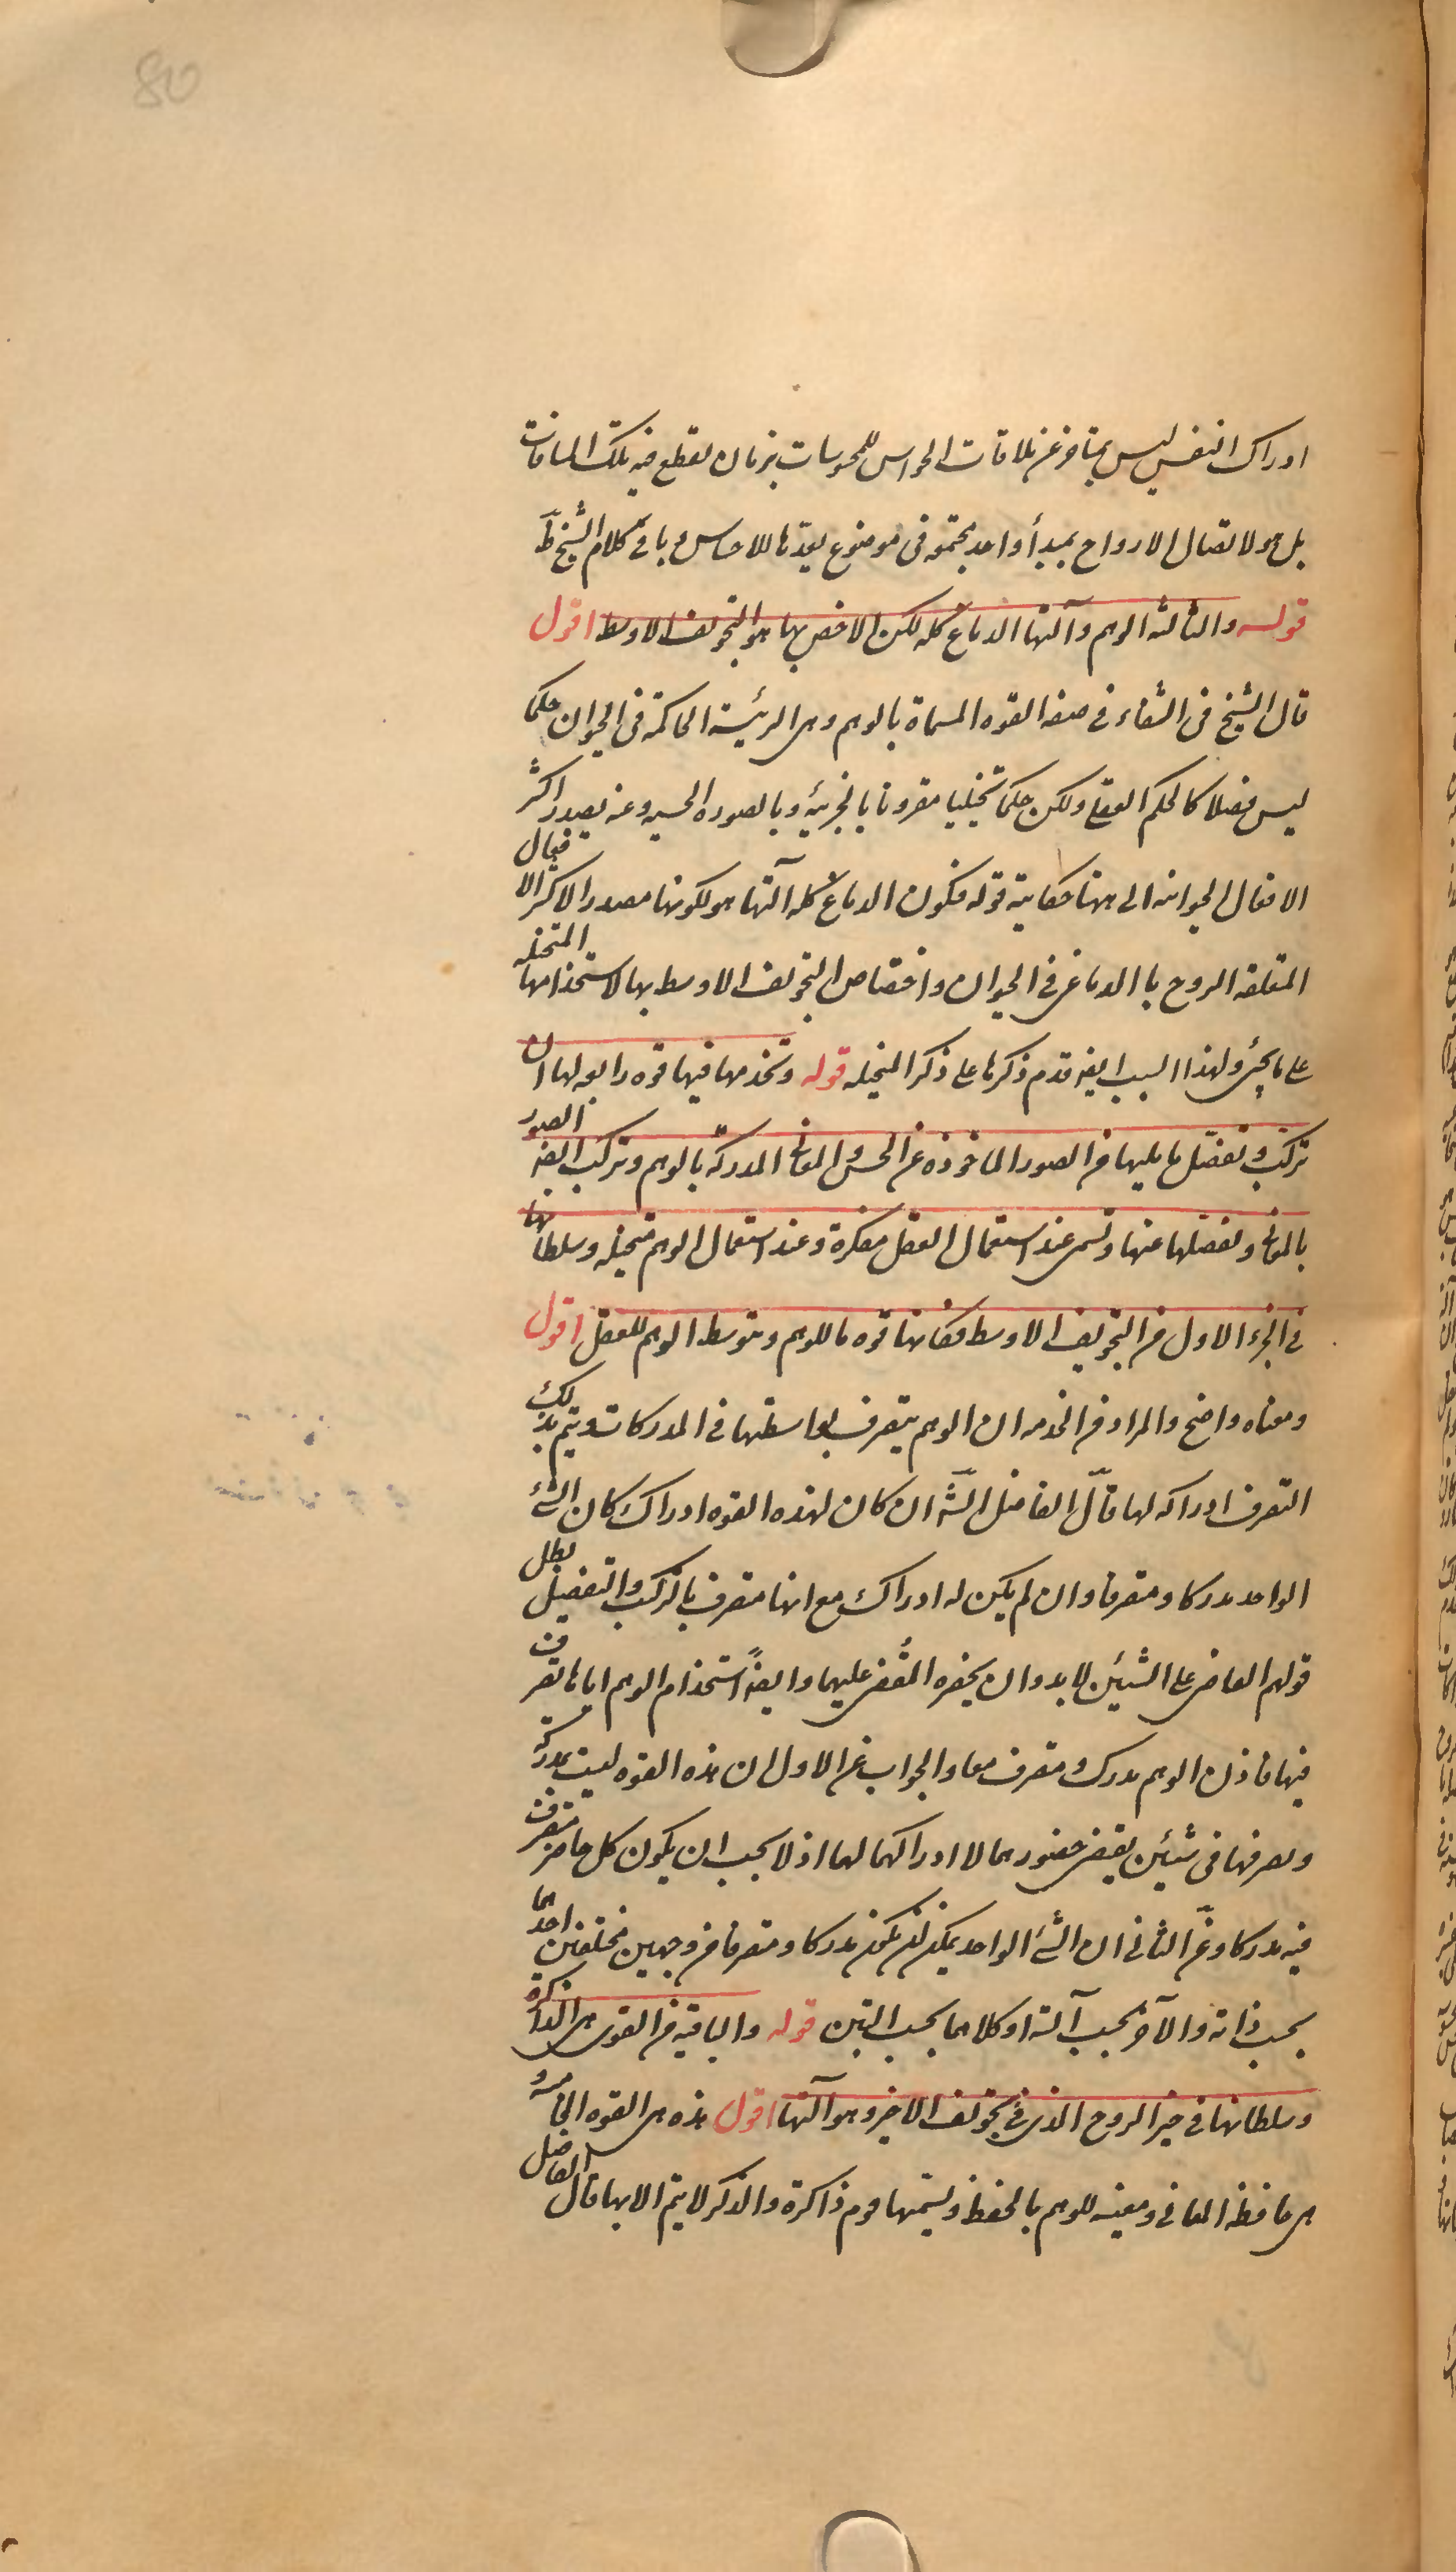 80
ادراك النفس ليس بمتاخر عن ملاقات الحواس للمحوسات بزمان لقطع فيه تلك المسافات
بل هو لاتصال الارواح بمبدأ واحد مجتمعة فى موضوع يعدّها للاحساس وباقى كلام الشيخ ظّ
قوله والثالثه الوهم وآلتها الدماغ كله لكن الاخص بها هو التجويف الاوسط اقول
قال الشيخ فى الشفاء فى صفه القوه المسماة بالوهم وهى الرئيسة الحاكمة فى الحيوان حكما
ليس فصلا كالحكم العقلى ولكن حكما تخيليا مقرونا بالجزئية وبالصوره الحسيه وعنه يصدر اكثر
الافعال الحيوانيه الى ههنا حكاية قوله فكون الدماغ كله آلتها هو لكونها مصدرا لاكثر الافعال
المتعلقه الروح با الدماغى فى الحيوان واختصاص التجويف الاوسط بها لاستخدامها المتخيله
على ما يجئ ولهذا السبب ايضه قدم ذكرها على ذكر المتخيله قوله وتخدمها فيها قوه رابعه لها ان
تركب وتفصّل ما يليها من الصور الماخوذه عن الحس والمعانى المدركة بالوهم وتركب ايضه الصور
بالمعانى وتفصلها عنها وتسمى عند استعمال العقل مفكرة وعند استعمال الوهم متخيله وسلطانها
فى الجزء الاول من التجويف الاوسط فكانها قوه ما للوهم وبتوسط الوهم للعقل اقول
ومعناه واضح والمراد من الخدمه ان الوهم يتصرف بواسطتها فى المدركات ويتم بذلك
التصرف ادراكه لها قال الفاضل الشّه ان كان لهذه القوه ادراك كان الشئ
الواحد مدركا ومتصرفا وان لم يكن له ادراك مع انها متصرفه بالتركيب والتفصيل بطل
قولهم القاضى على الشيئين لابد وان يحضره المقضى عليهما وايضهً استخدام الوهم اياها تصرف
فيها فاذن الوهم مدرك ومتصرف معا والجواب عن الاول ان هذه القوه ليست بمدركة
وتصرفها فى شيئين يقتضى حضورهما لا ادراكهما لهما اذ لا يجب ان يكون كل حاضر متصرف
فيه مدركا وعن الثانى ان الشئ الواحد يمكن ان يكون مدركا ومتصرفا من وجهين مختلفين احدهما
بحسب ذاته والآخر بحسب آلته او كلاهما بحسب آلتين قوله والباقيه من القوى هى الذاكرة
وسلطانها فى حيز الروح الذى فى تجويف الاخير وهو آلتها اقول هذه هى القوه الخامسه و
هى حافظه المعانى ومعينه للوهم بالحفظ ويسميها قوم ذاكرة والذكر لا يتم الا بها قال الفاضل